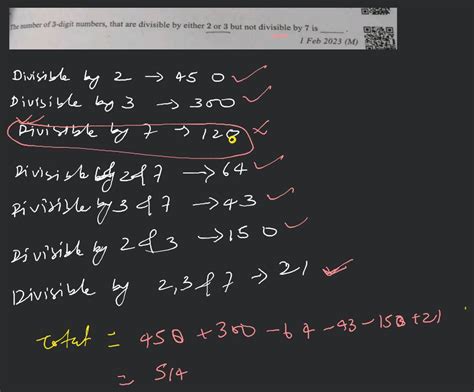 The number of 3-digit numbers, that are divisible by either 2 or 3 but not divisible by 7 is ______.
1 Feb 2023 (M)
Divisible by 2 → 450 ✓
Divisible by 3 → 300 ✓
Divisible by 7 → 128 ×
Divisible by 2 & 7 → 64 ✓
Divisible by 3 & 7 → 43 ✓
Divisible by 2 & 3 → 150 ✓
Divisible by 2,3 & 7 → 21 ✓
Total = 450 + 300 - 64 - 43 - 150 + 21
= 514